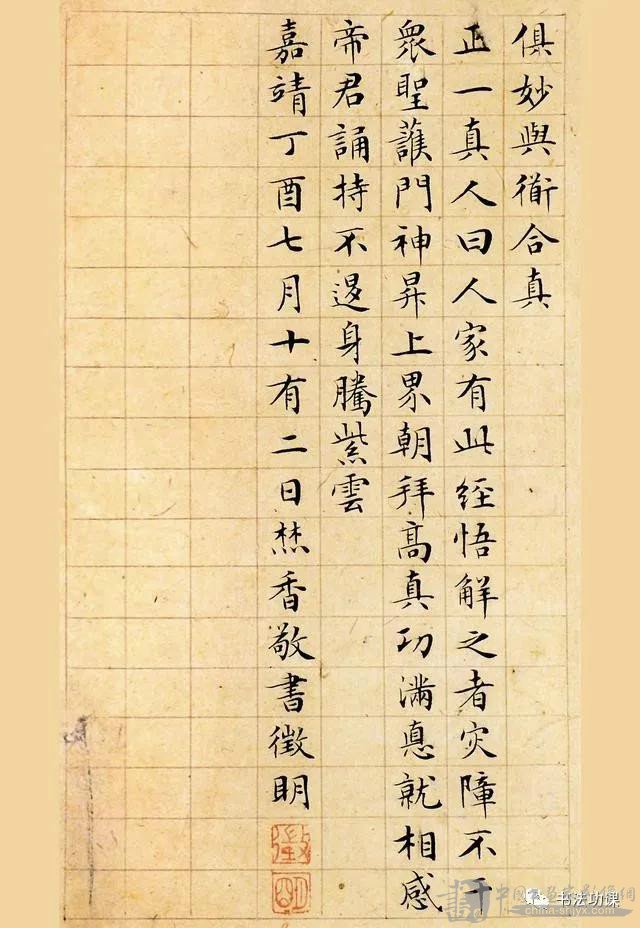 俱妙與衜合真
正一真人曰人家有此經悟解之者灾障不干
衆聖護門神昇上界朝拜髙真功滿悳就相感
帝君誦持不退身騰紫雲
嘉靖丁酉七月十有二日焚香敬書徵明
徵
明
书法功课
china-shjyx.com